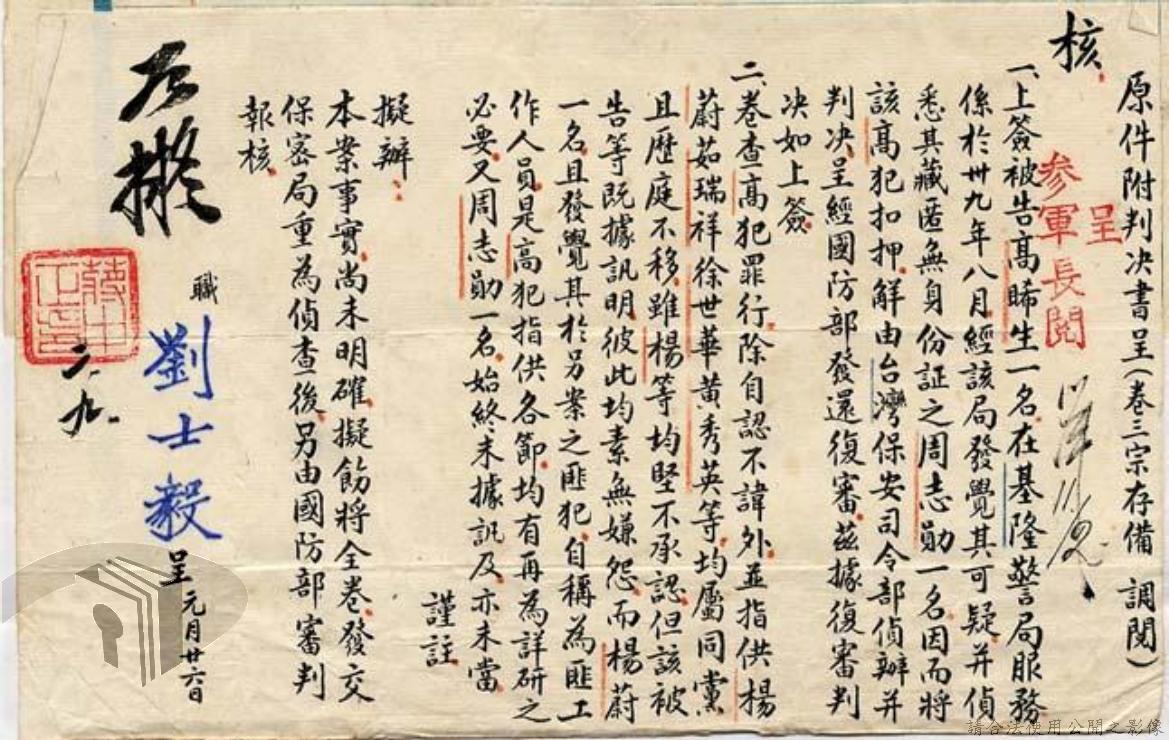 原件附判决書呈(卷三宗存備 調閱)
核
呈
參軍長閱
一、上簽被告高晞生一名、在基隆警局服務
係於卅九年八月經該局發覺其可疑并偵
悉其藏匿無身份証之周志勛一名因而將
該高犯扣押、解由台灣保安司令部偵辦并
判决、呈經國防部發還復審、茲據復審判
决如上簽
二、卷查高犯罪行、除自認不諱外、並指供楊
蔚茹瑞祥徐世華黃秀英等、均屬同黨
且歷庭不移、雖楊等均堅不承認、但該被
告等既據訊明、彼此均素無嫌怨、而楊蔚
一名、且發覺其於另案之匪犯、自稱為匪工
作人員、是高犯指供各節、均有再為詳研之
必要、又周志勛一名、始終未據訊及、亦未當
謹註
擬辦:
本案事實、尚未明確、擬飭將全卷、發交
保密局重為偵查後、另由國防部審判
報核、
職
劉士毅
呈
元月廿六日
如擬
蔣中正印
二、九、
請合法使用公開之影像